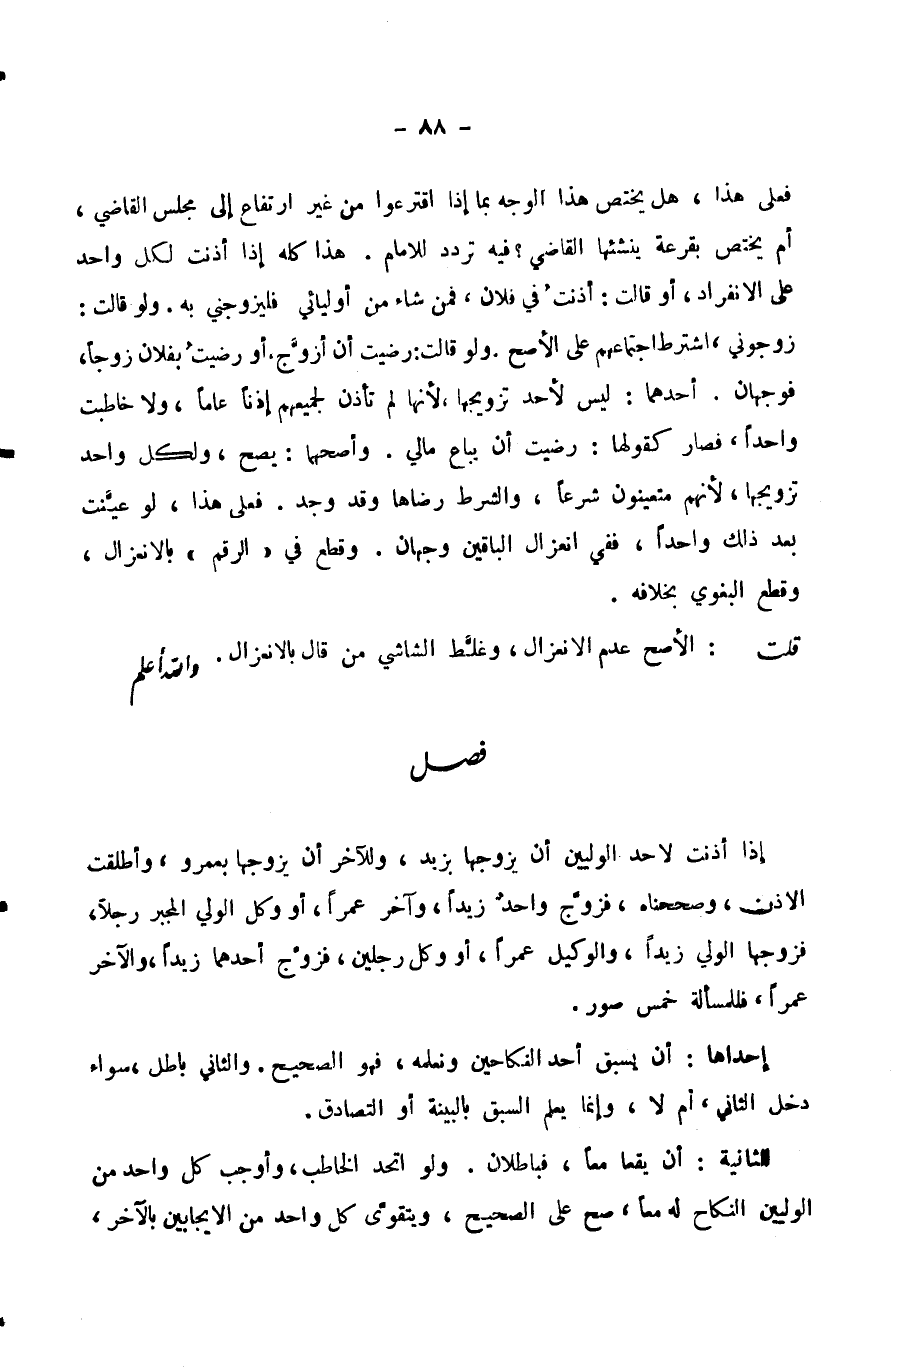 - ٨٨ -
فعلى هذا ، هل يختص هذا الوجه بما إذا اقترعوا من غير ارتفاع إلى مجلس القاضي ،
أم يختص بقرعة ينشئها القاضي ؟ فيه تردد للامام . هذا كله إذا أذنت لكل واحد
على الانفراد ، أو قالت : أذنتُ في فلان ، فمن شاء من أوليائي فليزوجني به . ولو قالت :
زوجوني ، اشترط اجتماعهم على الأصح . ولو قالت : رضيت أن أزوَّج ، أو رضيتُ بفلان زوجاً ،
فوجهان . أحدهما : ليس لأحد تزويجها ، لأنها لم تأذن لجميعهم إذناً عاماً ، ولا خاطبت
واحداً ، فصار كقولها : رضيت أن يباع مالي . وأصحها : يصح ، ولكل واحد
تزويجها ، لأنهم متعينون شرعاً ، والشرط رضاها وقد وجد . فعلى هذا ، لو عيَّنت
بعد ذلك واحداً ، ففي انعزال الباقين وجهان . وقطع في « الرقم » بالانعزال ،
وقطع البغوي بخلافه .
قلت : الأصح عدم الانعزال ، وغلَّط الشاشي من قال بالانعزال . والله أعلم
فصل
إذا أذنت لاحد الوليين أن يزوجها بزيد ، وللآخر أن يزوجها بعمرو ، وأطلقت
الاذن ، وصححناه ، فزوَّج واحدٌ زيداً ، وآخر عمراً ، أو وكل الولي المجبر رجلاً ،
فزوجها الولي زيداً ، والوكيل عمراً ، أو وكل رجلين ، فزوَّج أحدهما زيداً ، والآخر
عمراً ، فللمسألة خمس صور .
إحداها : أن يسبق أحد النكاحين ونعلمه ، فهو الصحيح . والثاني باطل ، سواء
دخل الثاني ، أم لا ، وإنما يعلم السبق بالبينة أو التصادق .
الثانية : أن يقعا معاً ، فباطلان . ولو اتحد الخاطب ، وأوجب كل واحد من
الوليين النكاح له معاً ، صح على الصحيح ، ويتقوَّى كل واحد من الايجابين بالآخر ،